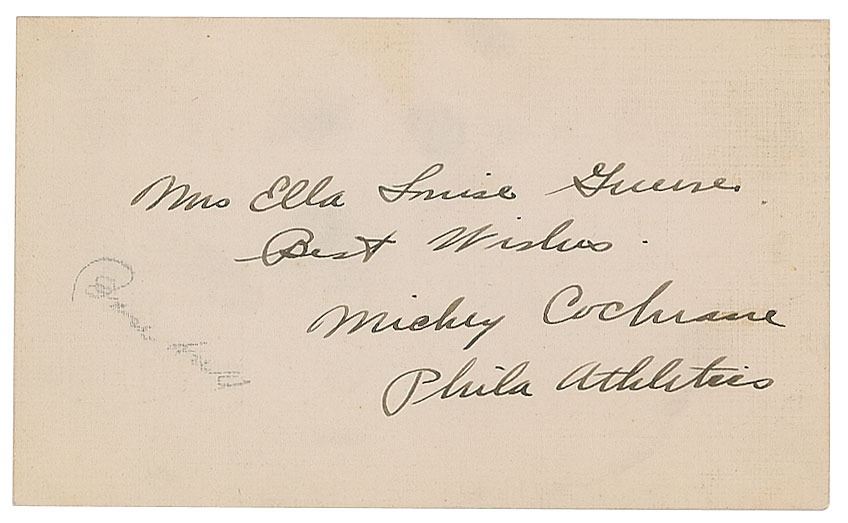 Mrs Ella Louise
Best Wishes.
Mickey Cochrane
Phila Athletics